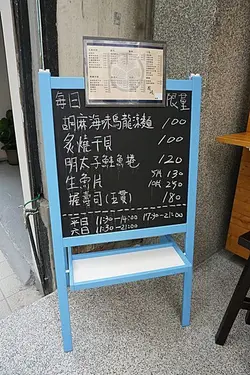 每日 限量
胡麻海味烏龍涼麵 100
炙燒干貝 100
明太子鮭魚捲 120
生魚片 5片 130
10片 250
握壽司(五貫) 180
平日 11:30-14:00 17:30-21:00
六日 11:30-21:00